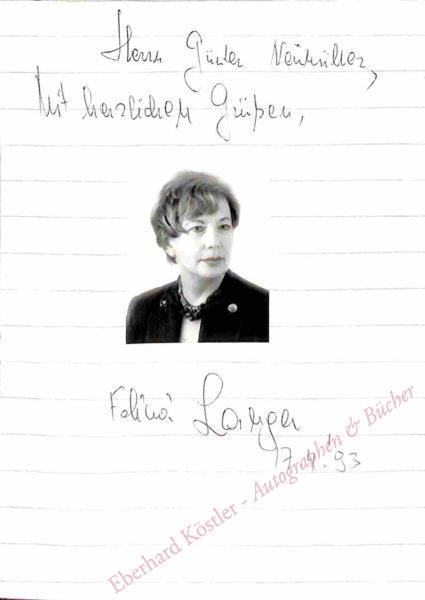 Herrn Günter
Mit herzlichen Grüßen,
Felicia Langer
17.4.93
Eberhard Köstler - Autographen & Bücher